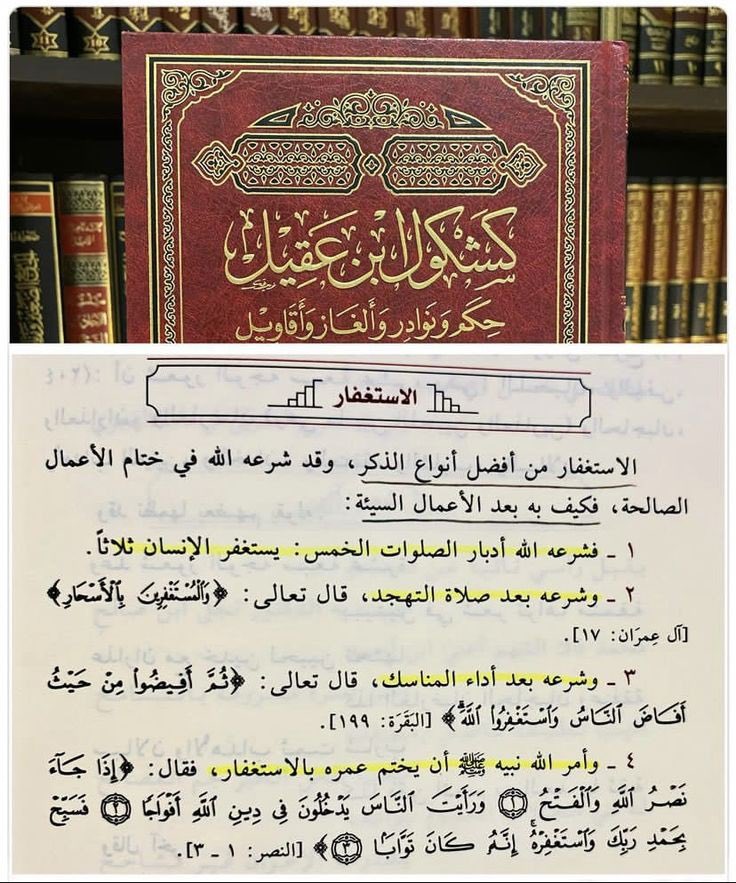 كشكول ابن عقيل
حكم ونوادر وألغاز وأقاويل
الاستغفار
الاستغفار من أفضل أنواع الذكر، وقد شرعه الله في ختام الأعمال
الصالحة، فكيف به بعد الأعمال السيئة:
١ ـ فشرعه الله أدبار الصلوات الخمس: يستغفر الإنسان ثلاثاً.
٢ ـ وشرعه بعد صلاة التهجد، قال تعالى: ﴿وَٱلْمُسْتَغْفِرِينَ بِٱلْأَسْحَارِ﴾
[آل عِمرَان: ١٧].
٣ ـ وشرعه بعد أداء المناسك، قال تعالى: ﴿ثُمَّ أَفِيضُوا۟ مِنْ حَيْثُ
أَفَاضَ ٱلنَّاسُ وَٱسْتَغْفِرُوا۟ ٱللَّهَ﴾ [البَقَرَة: ١٩٩].
٤ ـ وأمر الله نبيه ﷺ أن يختم عمره بالاستغفار، فقال: ﴿إِذَا جَآءَ
نَصْرُ ٱللَّهِ وَٱلْفَتْحُ ۝١ وَرَأَيْتَ ٱلنَّاسَ يَدْخُلُونَ فِى دِينِ ٱللَّهِ أَفْوَاجًا ۝٢ فَسَبِّحْ
بِحَمْدِ رَبِّكَ وَٱسْتَغْفِرْهُ إِنَّهُۥ كَانَ تَوَّابًا ۝٣﴾ [النصر: ١ ـ ٣].